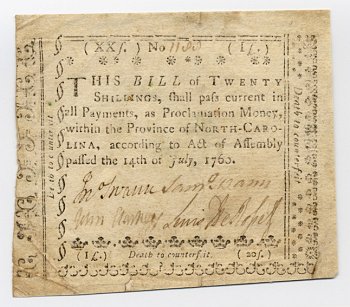 (XXſ.) No 1180 (1£.)
THIS BILL of TWENTY
SHILLINGS, ſhall paſs current in
all Payments, as Proclamation Money,
within the Province of NORTH-CARO-
LINA, according to Act of Aſſembly
paſſed the 14th of July, 1760.
Jno Swann Saml Swann
Lewis DeRoſſet
(1£.) Death to counterfeit. (20ſ.)
Death to counterfeit
Death to counterfeit